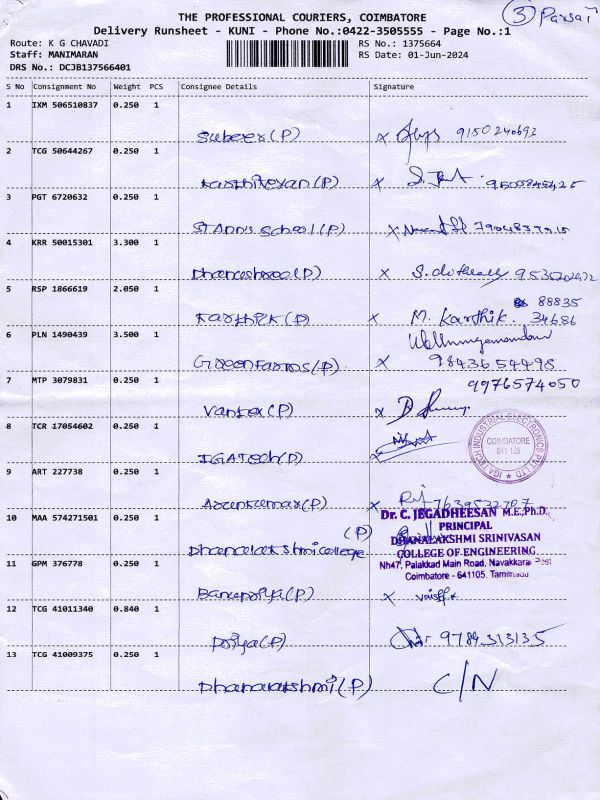 THE PROFESSIONAL COURIERS, COIMBATORE
Delivery Runsheet - KUNI - Phone No.:0422-3505555 - Page No.:1
3 Parsal
Route: K G CHAVADI
RS No.: 1375664
Staff: MANIMARAN
RS Date: 01-Jun-2024
DRS No.: DCJB137566401
S No Consignment No Weight PCS Consignee Details Signature
1 IXM 506510837 0.250 1
Subeer (P) x 9150240692
2 TCG 50644267 0.250 1
Karthikeyan (P) x
3 PGT 6720632 0.250 1
St Anns School (P) x
4 KRR 50015301 3.300 1
(P) x
5 RSP 1866619 2.050 1
88835
Karthik (P) x M. Karthik. 34686
6 PLN 1490439 3.500 1
Green Farms (P) x 9843654498
7 MTP 3079831 0.250 1
9976574050
Vantex (P) x
8 TCR 17054602 0.250 1
IGA TECH INDUSTRIAL ELECTRONICS PVT LTD
COIMBATORE
641 105
IGATech (P) x
9 ART 227738 0.250 1
Arunkumar (P) x
10 MAA 574271501 0.250 1
Dr. C. JEGADHEESAN M.E.,Ph.D.,
PRINCIPAL
(P)
Dhanalakshmi college
DHANALAKSHMI SRINIVASAN
COLLEGE OF ENGINEERING
11 GPM 376778 0.250 1
Nh47, Palakkad Main Road, Navakkarai Post
Coimbatore - 641105. Tamilnadu
(P) x
12 TCG 41011340 0.840 1
Priya (P) 9789313135
13 TCG 41009375 0.250 1
Dhanalakshmi (P) C/N